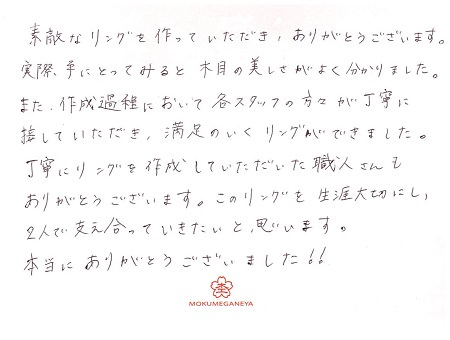 素敵なリングを作っていただき、ありがとうございます。
実際、手にとってみると木目の美しさがよく分かりました。
また、作成過程において各スタッフの方々が丁寧に
接していただき、満足のいくリングができました。
丁寧にリングを作成していただいた職人さんも
ありがとうございます。このリングを生涯大切にし、
2人で支え合っていきたいと思います。
本当にありがとうございました!!
MOKUMEGANEYA